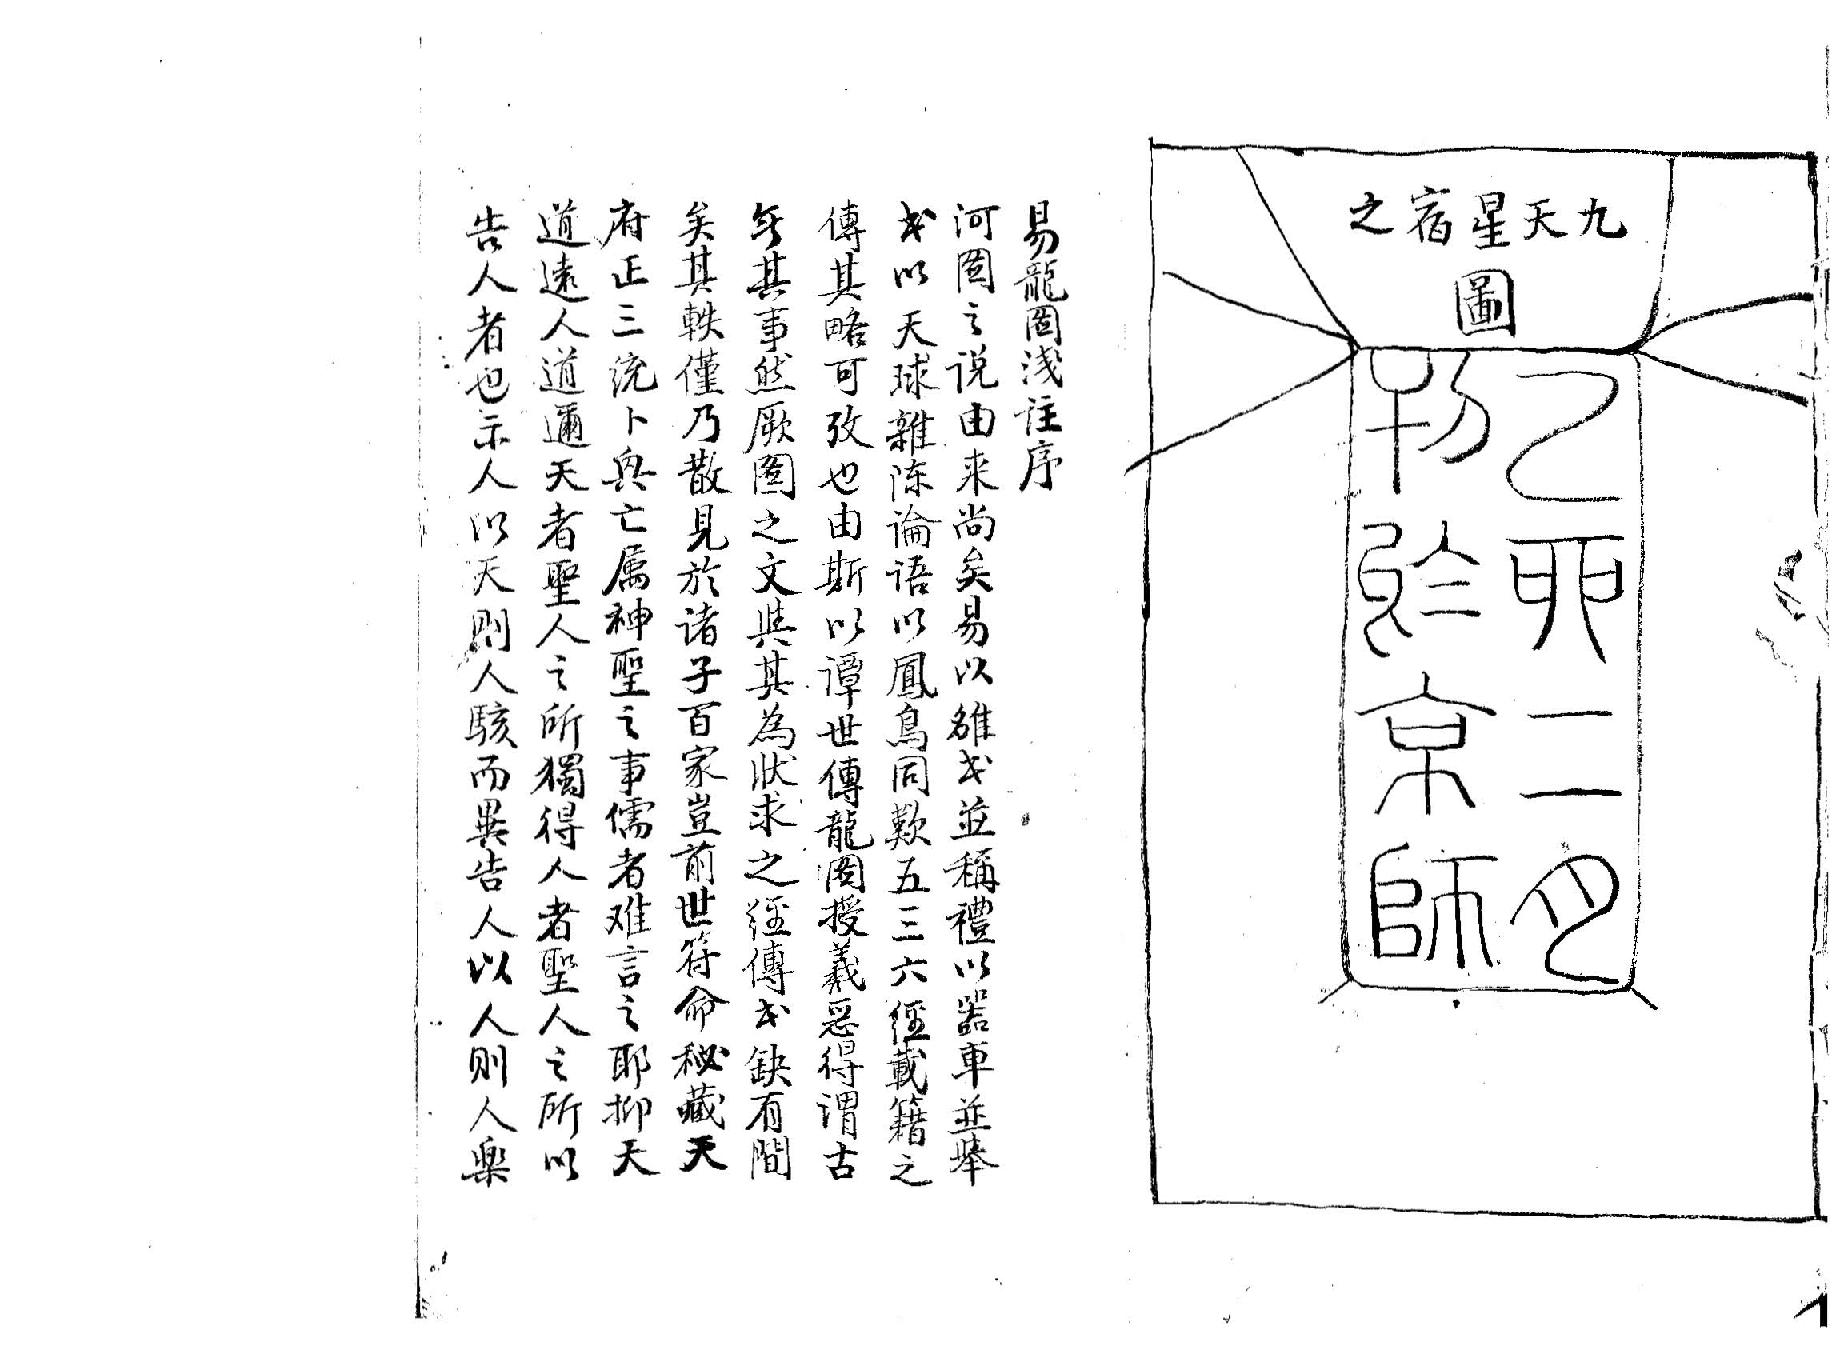 九天星宿之
圖
乙卯二月
刊於京師
易龍圖淺註序
河圖之说由来尚矣易以雒书並稱禮以器車並舉
书以天球雜陈論语以鳳鳥同歎五三六經載籍之
傳其略可攷也由斯以譚世傳龍圖授羲惡得谓古
無其事然厥圖之文與其為狀求之經傳书缺有間
矣其軼僅乃散見於诸子百家豈前世符命秘藏天
府正三统卜興亡属神聖之事儒者难言之耶抑天
道遠人道邇天者聖人之所獨得人者聖人之所以
告人者也示人以天則人駭而異告人以人則人樂